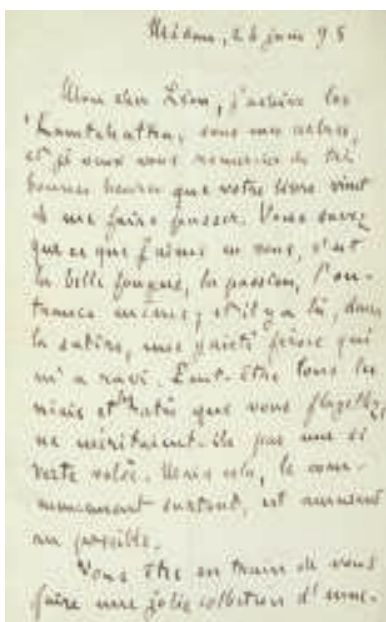 Médan, 26 juin 95
Mon cher Léon, j'achève les
"Kamtchatka, sous mes arbres,
et je veux vous remercier des très
bonnes heures que votre livre vient
de me faire passer. Vous savez
que ce que j'aime en vous, c'est
la belle fougue, la passion, l'ou-
trance même; et il y a là, dans
la satire, une gaieté féroce qui
m'a ravi. Peut-être tous les
niais et les ratés que vous flagellez
ne méritaient-ils pas une si
verte volée. Mais cela, le com-
mencement surtout, est amusant
au possible.
Vous êtes en train de vous
faire une jolie collection d'enne-